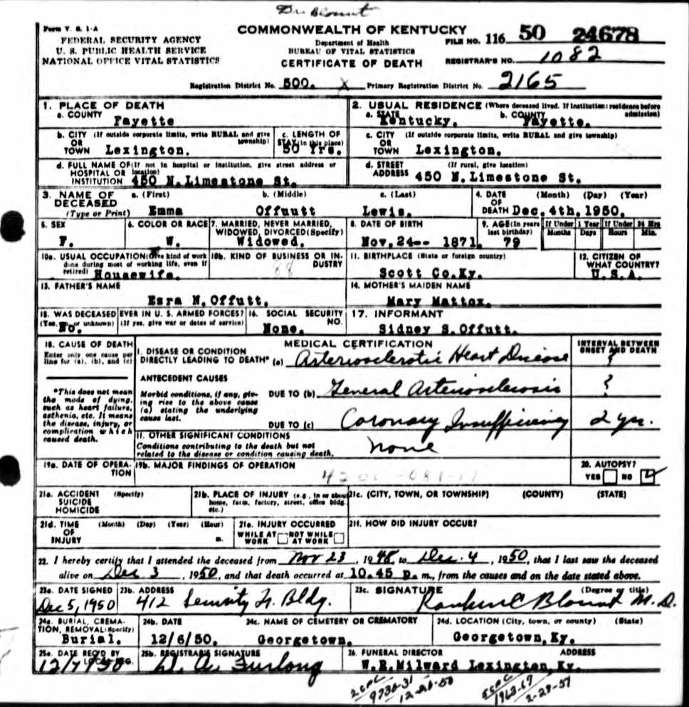 Dr. Blount
Form V. S. 1-A
FEDERAL SECURITY AGENCY
U. S. PUBLIC HEALTH SERVICE
NATIONAL OFFICE VITAL STATISTICS
COMMONWEALTH OF KENTUCKY
Department of Health
BUREAU OF VITAL STATISTICS
CERTIFICATE OF DEATH
FILE NO. 116 50 24678
REGISTRAR'S NO. 1082
Registration District No. 500. x Primary Registration District No. 2165
1. PLACE OF DEATH
a. COUNTY Fayette
2. USUAL RESIDENCE (Where deceased lived. If institution: residence before admission)
a. STATE Kentucky. b. COUNTY Fayette.
b. CITY (If outside corporate limits, write RURAL and give township)
OR TOWN Lexington.
c. LENGTH OF STAY (in this place) 50 Yrs.
c. CITY (If outside corporate limits, write RURAL and give township)
OR TOWN Lexington.
d. FULL NAME OF (If not in hospital or institution, give street address or location)
HOSPITAL OR INSTITUTION 450 N.Limestone St.
d. STREET ADDRESS (If rural, give location)
450 N.Limestone St.
3. NAME OF DECEASED (Type or Print)
a. (First) b. (Middle) c. (Last)
Emma Offuutt Lewis.
4. DATE OF DEATH (Month) (Day) (Year)
Dec. 4th, 1950.
5. SEX
F.
6. COLOR OR RACE
W.
7. MARRIED, NEVER MARRIED, WIDOWED, DIVORCED (Specify)
Widowed.
8. DATE OF BIRTH
Nov. 24-- 1871.
9. AGE (In years last birthday) 79
If Under 1 Year Months Days
If Under 24 Hrs Hours Min.
10a. USUAL OCCUPATION (Give kind of work done during most of working life, even if retired)
Housewife.
10b. KIND OF BUSINESS OR INDUSTRY
11. BIRTHPLACE (State or foreign country)
Scott Co.Ky.
12. CITIZEN OF WHAT COUNTRY?
U.S.A.
13. FATHER'S NAME
Esra N.Offutt.
14. MOTHER'S MAIDEN NAME
Mary Mattox.
15. WAS DECEASED EVER IN U. S. ARMED FORCES?
(Yes, no or unknown) (If yes, give war or dates of service)
No.
16. SOCIAL SECURITY NO.
None.
17. INFORMANT
Sidney S.Offutt.
18. CAUSE OF DEATH
Enter only one cause per line for (a), (b), and (c)
*This does not mean the mode of dying, such as heart failure, asthenia, etc. It means the disease, injury, or complication which caused death.
MEDICAL CERTIFICATION
INTERVAL BETWEEN ONSET AND DEATH
I. DISEASE OR CONDITION DIRECTLY LEADING TO DEATH* (a) Arteriosclerotic Heart Disease ?
ANTECEDENT CAUSES
Morbid conditions, if any, giving rise to the above cause (a) stating the underlying cause last.
DUE TO (b) General Arteriosclerosis ?
DUE TO (c) Coronary Insufficiency 2 yrs.
II. OTHER SIGNIFICANT CONDITIONS
Conditions contributing to the death but not related to the disease or condition causing death.
None
19a. DATE OF OPERATION
19b. MAJOR FINDINGS OF OPERATION
20. AUTOPSY?
YES NO
21a. ACCIDENT SUICIDE HOMICIDE (Specify)
21b. PLACE OF INJURY (e.g., in or about home, farm, factory, street, office bldg. etc.)
21c. (CITY, TOWN, OR TOWNSHIP) (COUNTY) (STATE)
21d. TIME OF INJURY (Month) (Day) (Year) (Hour) m.
21e. INJURY OCCURRED
WHILE AT WORK NOT WHILE AT WORK
21f. HOW DID INJURY OCCUR?
22. I hereby certify that I attended the deceased from Nov 23, 1948 to Dec. 4, 1950, that I last saw the deceased
alive on Dec 3, 1950, and that death occurred at 10.45 P. m., from the causes and on the date stated above.
23a. DATE SIGNED
Dec 5, 1950
23b. ADDRESS
412 Security Tr. Bldg.
23c. SIGNATURE (Degree or title)
Rankin C Blount M.D.
24a. BURIAL, CREMATION, REMOVAL (Specify)
Burial.
24b. DATE
12/6/50.
24c. NAME OF CEMETERY OR CREMATORY
Georgetown.
24d. LOCATION (City, town, or county) (State)
Georgetown,Ky.
25a. DATE REC'D BY LOCAL REG.
12/7/50
25b. REGISTRARS SIGNATURE
26. FUNERAL DIRECTOR ADDRESS
W.R.Milward Lexington,Ky.
9730-31
12-28-50
1963-67
2-28-57